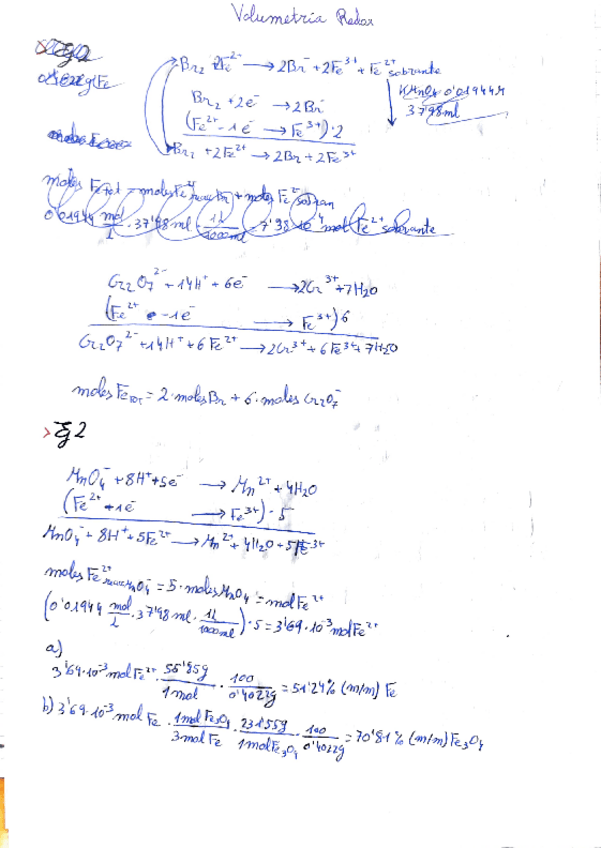 Volumetria Redox
Br₂ + 2Fe²⁻ → 2Br⁻ + 2Fe³⁺ + Fe²⁺ sobrante
KMnO₄ 0'01944M
37'98ml
Br₂ + 2e⁻ → 2Br⁻
(Fe²⁻ - 1e⁻ → Fe³⁺)·2
Br₂ + 2Fe²⁺ → 2Br + 2Fe³⁺
0'01944 mol/l · 37'98 ml · 1l/1000ml · 7'38·10⁻⁴ mol Fe²⁺ sobrante
Cr₂O₇²⁻ + 14H⁺ + 6e⁻ → 2Cr³⁺ + 7H₂O
(Fe²⁺ - 1e⁻ → Fe³⁺)6
Cr₂O₇²⁻ + 14H⁺ + 6Fe²⁺ → 2Cr³⁺ + 6Fe³⁺ + 7H₂O
moles Fe TOT = 2·moles Br + 6·moles Cr₂O₇⁻
> Ej 2
MnO₄⁻ + 8H⁺ + 5e⁻ → Mn²⁺ + 4H₂O
(Fe²⁺ - 1e⁻ → Fe³⁺)·5
MnO₄⁻ + 8H⁺ + 5Fe²⁺ → Mn²⁺ + 4H₂O + 5Fe³⁺
moles Fe²⁺ reacc MnO₄⁻ = 5·moles MnO₄⁻ = mol Fe²⁺
(0'01944 mol/l · 37'98 ml · 1l/1000ml)·5 = 3'69·10⁻³ mol Fe²⁺
a)
3'69·10⁻³ mol Fe²⁺ · 55'85g/1mol · 100/0'4022g = 51'24% (m/m) Fe
b) 3'69·10⁻³ mol Fe · 1mol Fe₃O₄/3mol Fe · 231'55g/1mol Fe₃O₄ · 100/0'4022g = 70'81% (m/m) Fe₃O₄